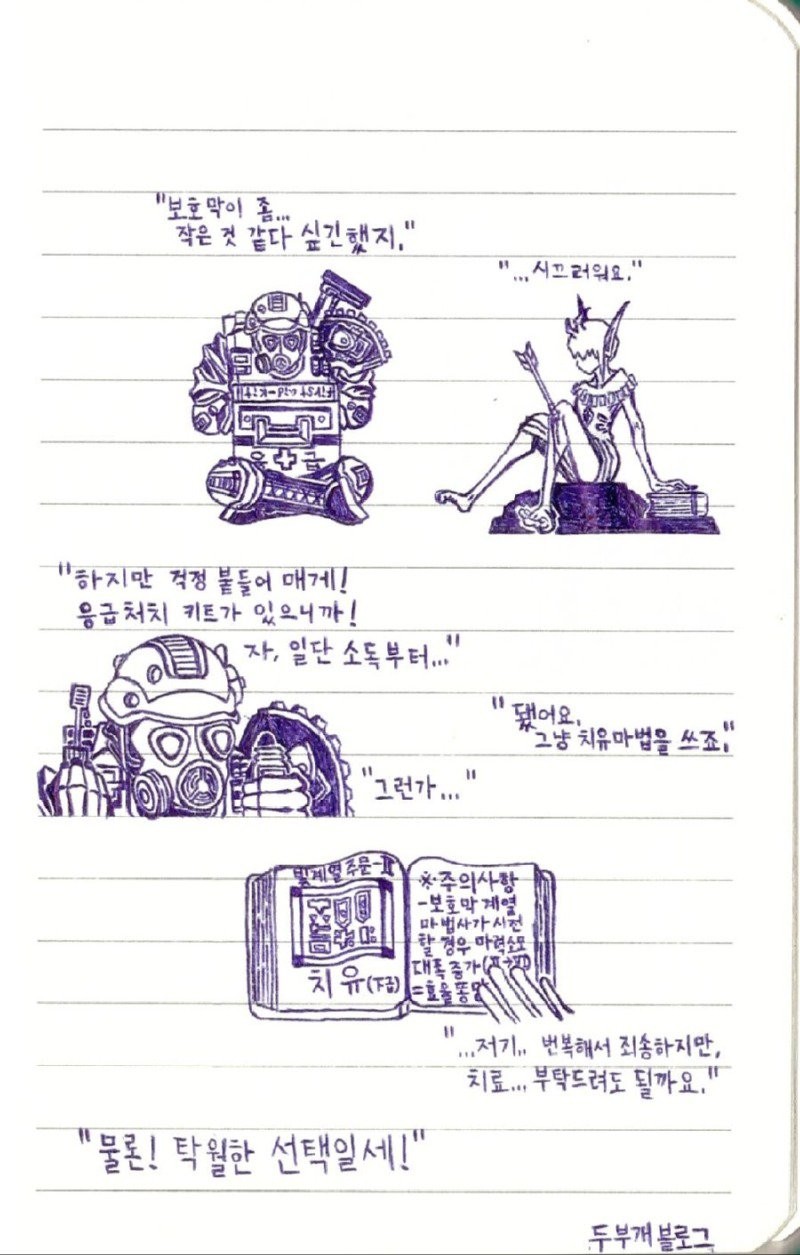 "보호막이 좀...
작은 것 같다 싶긴했지."
"...시끄러워요."
First aid-kit
응급
"하지만 걱정 붙들어 매게!
응급처치 키트가 있으니까!
자, 일단 소독부터..."
"됐어요.
그냥 치유마법을 쓰죠."
"그런가..."
빛계열주문-Ⅱ
치유(下급)
※주의사항
-보호막 계열
마법사가 시전
할 경우 마력소모
대폭증가(Ⅱ→Ⅵ)
=효율똥망
"...저기.. 번복해서 죄송하지만,
치료... 부탁드려도 될까요."
"물론! 탁월한 선택일세!"
두부개블로그